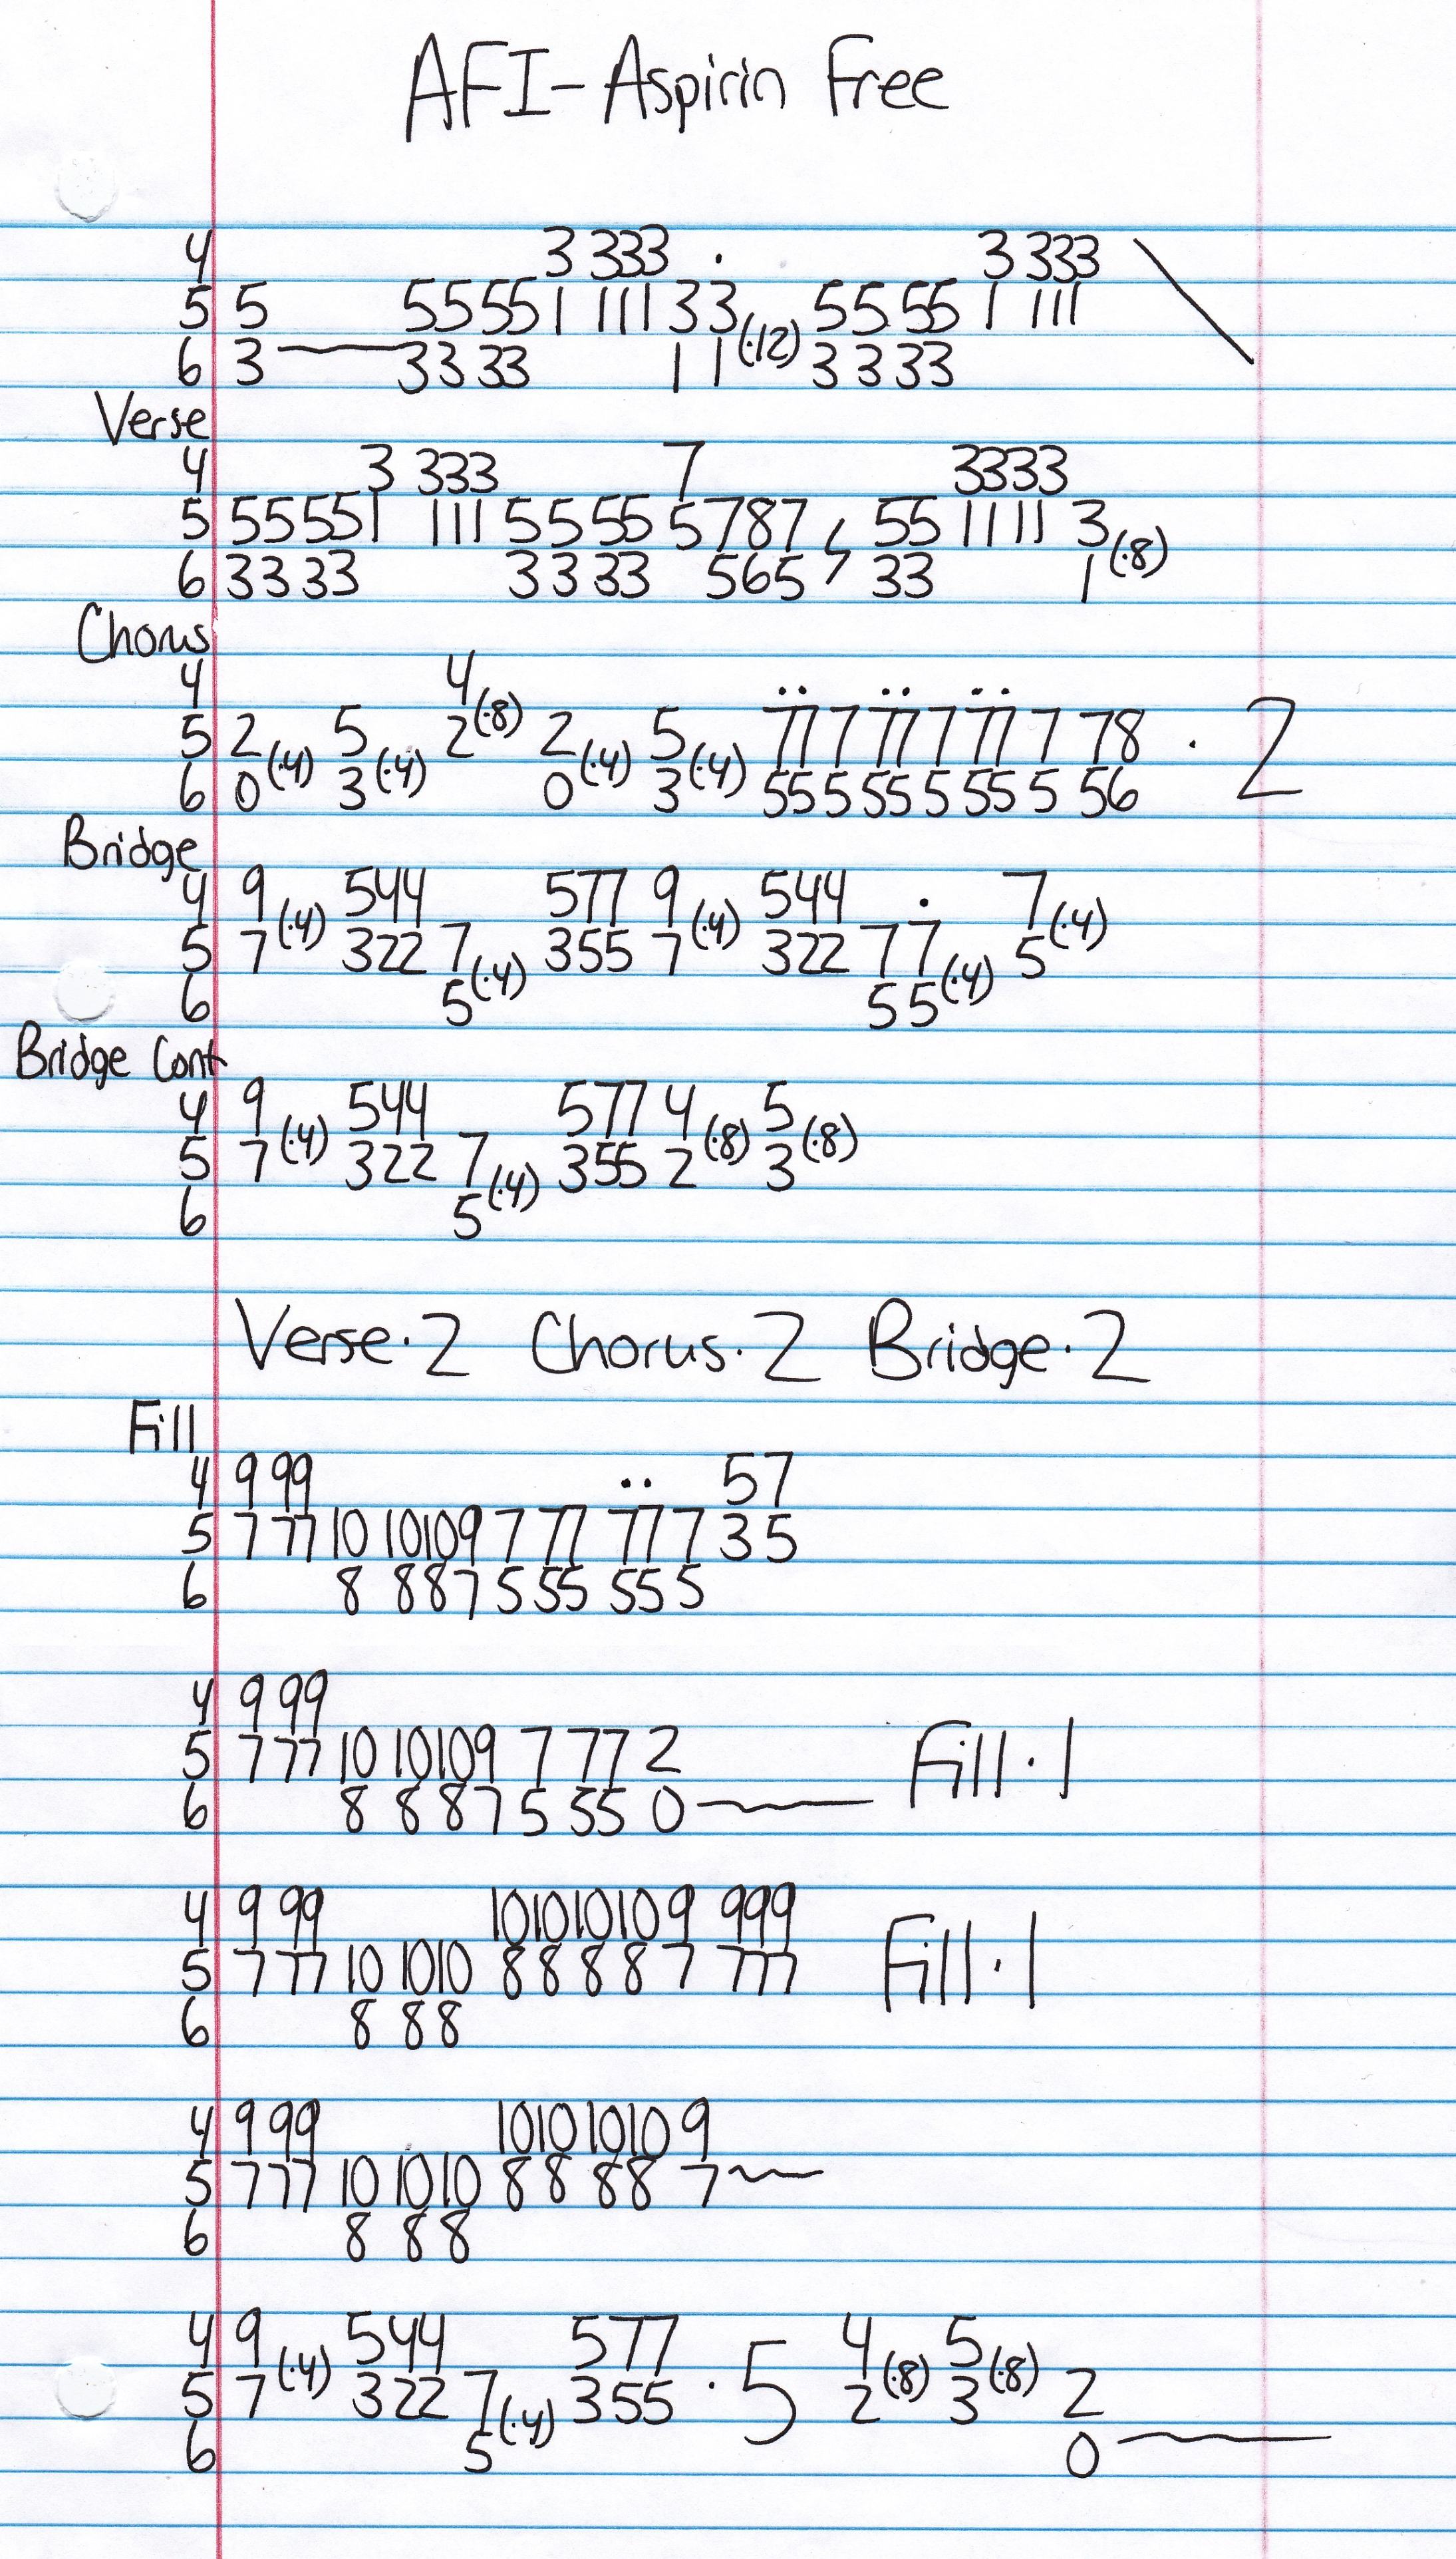 AFI - Aspirin Free
4 3 333 . 3 333
5 5 5555 1 111 33 (·12) 5555 1 111
6 3 3333 11 3333
Verse
4 3 333 7 3333
5 5555 1 111 5555 5787 55 1111 3 (·8)
6 3333 3333 565 33 1
Chorus
4 4
5 2 (·4) 5 (·4) 2 (·8) 2 (·4) 5 (·4) 77 7 77 7 77 7 78 · 2
6 0 3 0 3 55 5 55 5 55 5 56
Bridge
4 9 (·4) 544 577 9 (·4) 544 . 7 (·4)
5 7 322 7 (·4) 355 7 322 77 (·4) 5
6 5 55
Bridge Cont
4 9 (·4) 544 577 4 (·8) 5 (·8)
5 7 322 7 (·4) 355 2 3
6 5
Verse·2 Chorus·2 Bridge·2
Fill
4 9 99 .. 57
5 7 77 10 10109 7 77 77 7 35
6 8 887 5 55 55 5
4 9 99
5 7 77 10 10109 7 77 2 Fill·1
6 8 887 5 55 0
4 9 99 10101010 9 999
5 7 77 10 1010 8888 7 777 Fill·1
6 8 88
4 9 99 1010 1010 9
5 7 77 10 1010 88 88 7
6 8 88
4 9 (·4) 544 577 4 (·8) 5 (·8)
5 7 322 7 (·4) 355 · 5 2 3 2
6 5 0